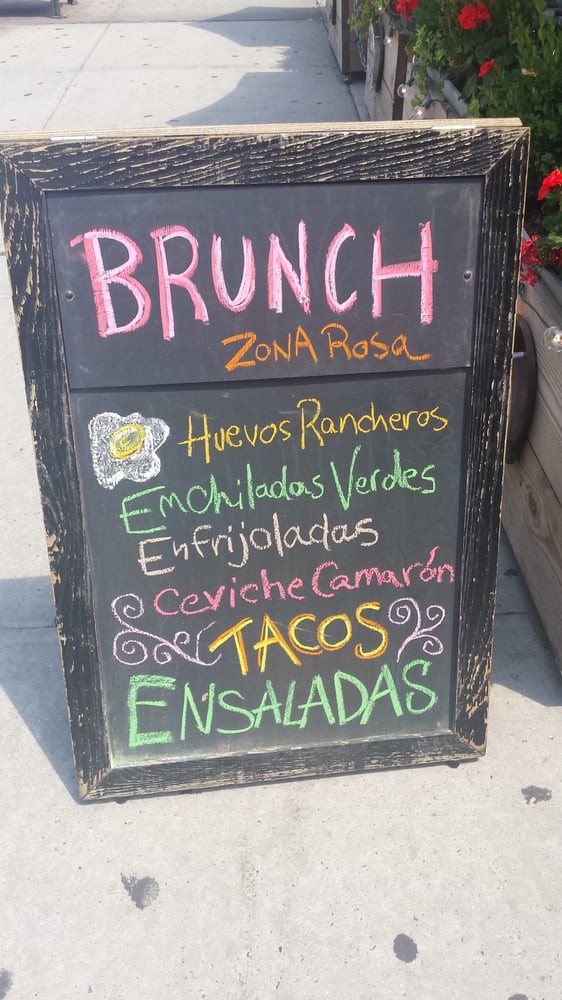 BRUNCH
ZONA Rosa
Huevos Rancheros
Emchiladas Verdes
Enfrijoladas
Ceviche Camarón
TACOS
ENSALADAS